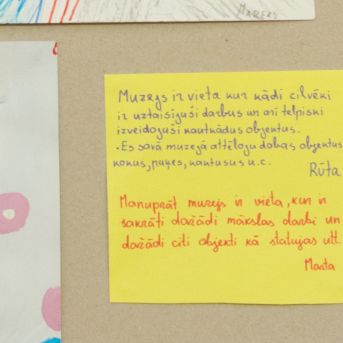 MAREKS
Muzejs ir vieta kur kādi cilvēki
ir uztaisījuši darbus un arī telpiski
izveidojuši kautkādus objektus.
-Es savā muzejā attēloju dabas objektus
kokus, puķes, kautusus u.c.
Rūta
Manuprāt muzejs ir vieta, kur ir
sakrāti dažādi mākslas darbi un
dažādi citi objekti kā statujas utt.
Marta